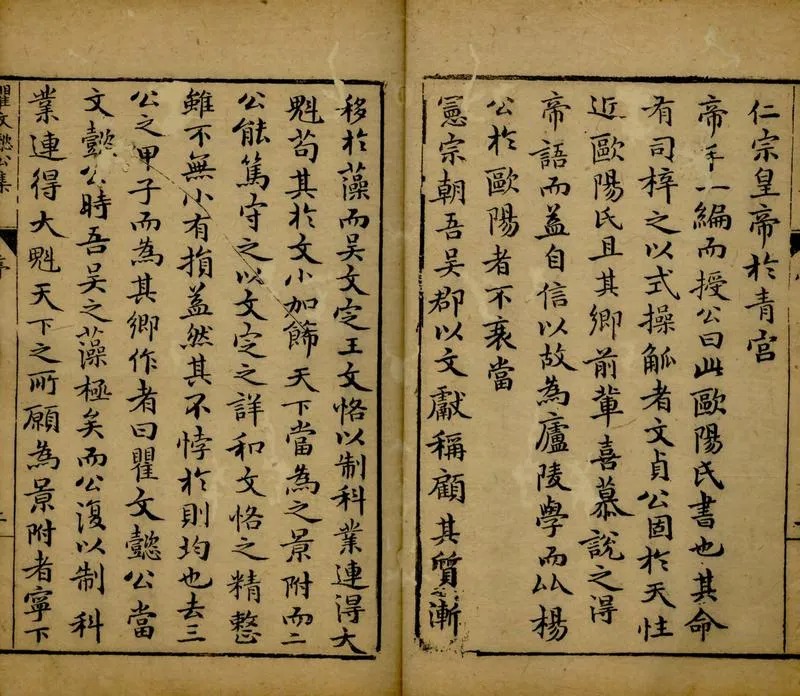 仁宗皇帝於青宮
帝手一編而授公曰此歐陽氏書也其命
有司梓之以式操觚者文貞公固於天性
近歐陽氏且其鄉前輩喜慕說之得
帝語而益自信以故為廬陵學而以楊
公於歐陽者不衰當
憲宗朝吾吳郡以文獻稱顧其質漸
移於藻而吳文定王文恪以制科業連得大
魁苟其於文小加飾天下當為之景附而二
公能篤守之以文定之詳和文恪之精整
雖不無小有損益然其不悖於則均也去三
公之甲子而為其鄉作者曰瞿文懿公當
文懿公時吾吳之藻極矣而公復以制科
業連得大魁天下之所願為景附者寧下
瞿文懿公集
序